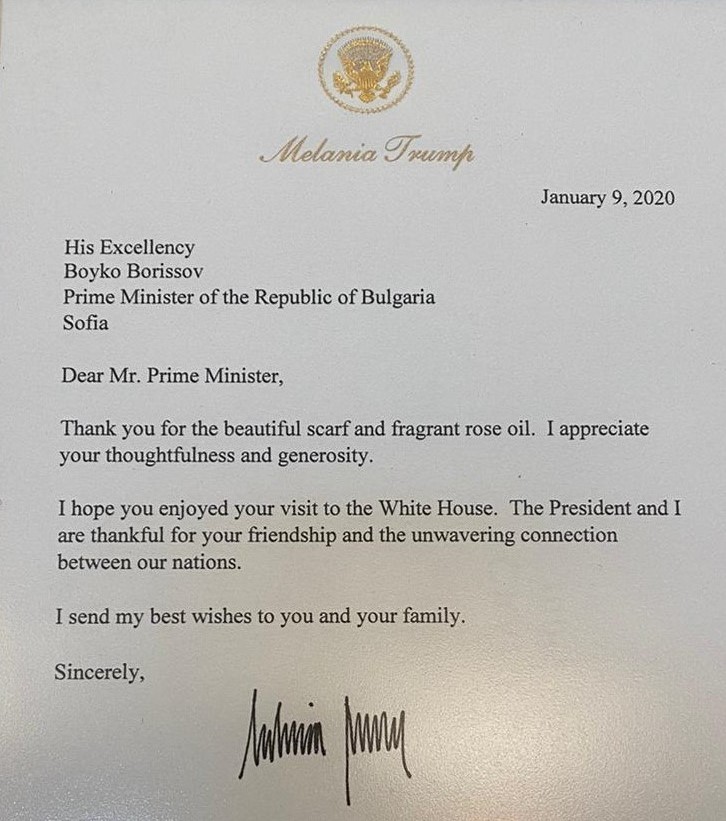 Melania Trump
January 9, 2020
His Excellency
Boyko Borissov
Prime Minister of the Republic of Bulgaria
Sofia
Dear Mr. Prime Minister,
Thank you for the beautiful scarf and fragrant rose oil. I appreciate
your thoughtfulness and generosity.
I hope you enjoyed your visit to the White House. The President and I
are thankful for your friendship and the unwavering connection
between our nations.
I send my best wishes to you and your family.
Sincerely,